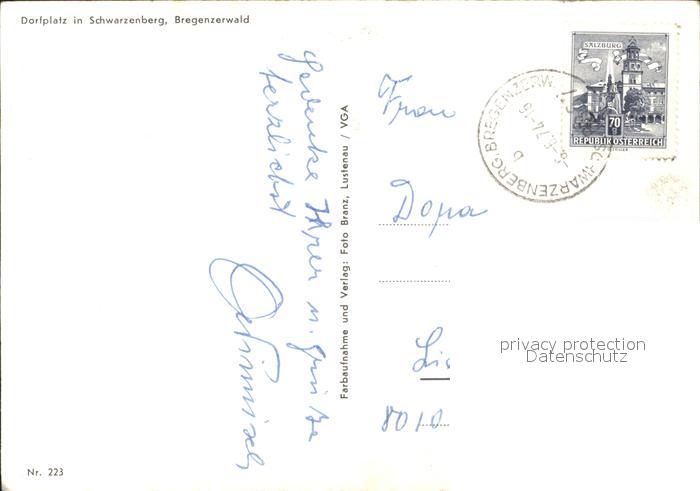 Dorfplatz in Schwarzenberg, Bregenzerwald
SALZBURG
70
g
REPUBLIK ÖSTERREICH
SCHWARZENBERG, BREGENZERW.
-6.-6.74-16
b
Gedenke Ihrer u. grüße
herzlichst
Farbaufnahme und Verlag: Foto Branz, Lustenau / VGA
Frau
Dopa
8010
privacy protection
Datenschutz
Nr. 223